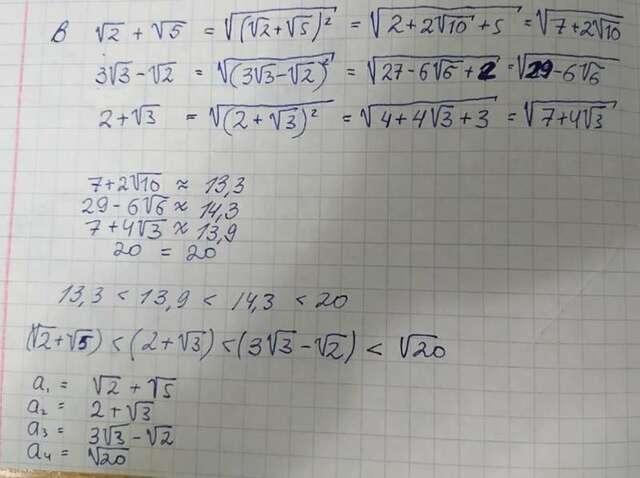 В √2 + √5 = √(√2+√5)² = √2+2√10+5 = √7+2√10
3√3-√2 = √(3√3-√2)² = √27-6√6+2 = √29-6√6
2+√3 = √(2+√3)² = √4+4√3+3 = √7+4√3
7+2√10 ≈ 13,3
29-6√6 ≈ 14,3
7+4√3 ≈ 13,9
20 = 20
13,3 < 13,9 < 14,3 < 20
(√2+√5) < (2+√3) < (3√3-√2) < √20
a₁ = √2 + √5
a₂ = 2+√3
a₃ = 3√3-√2
a₄ = √20